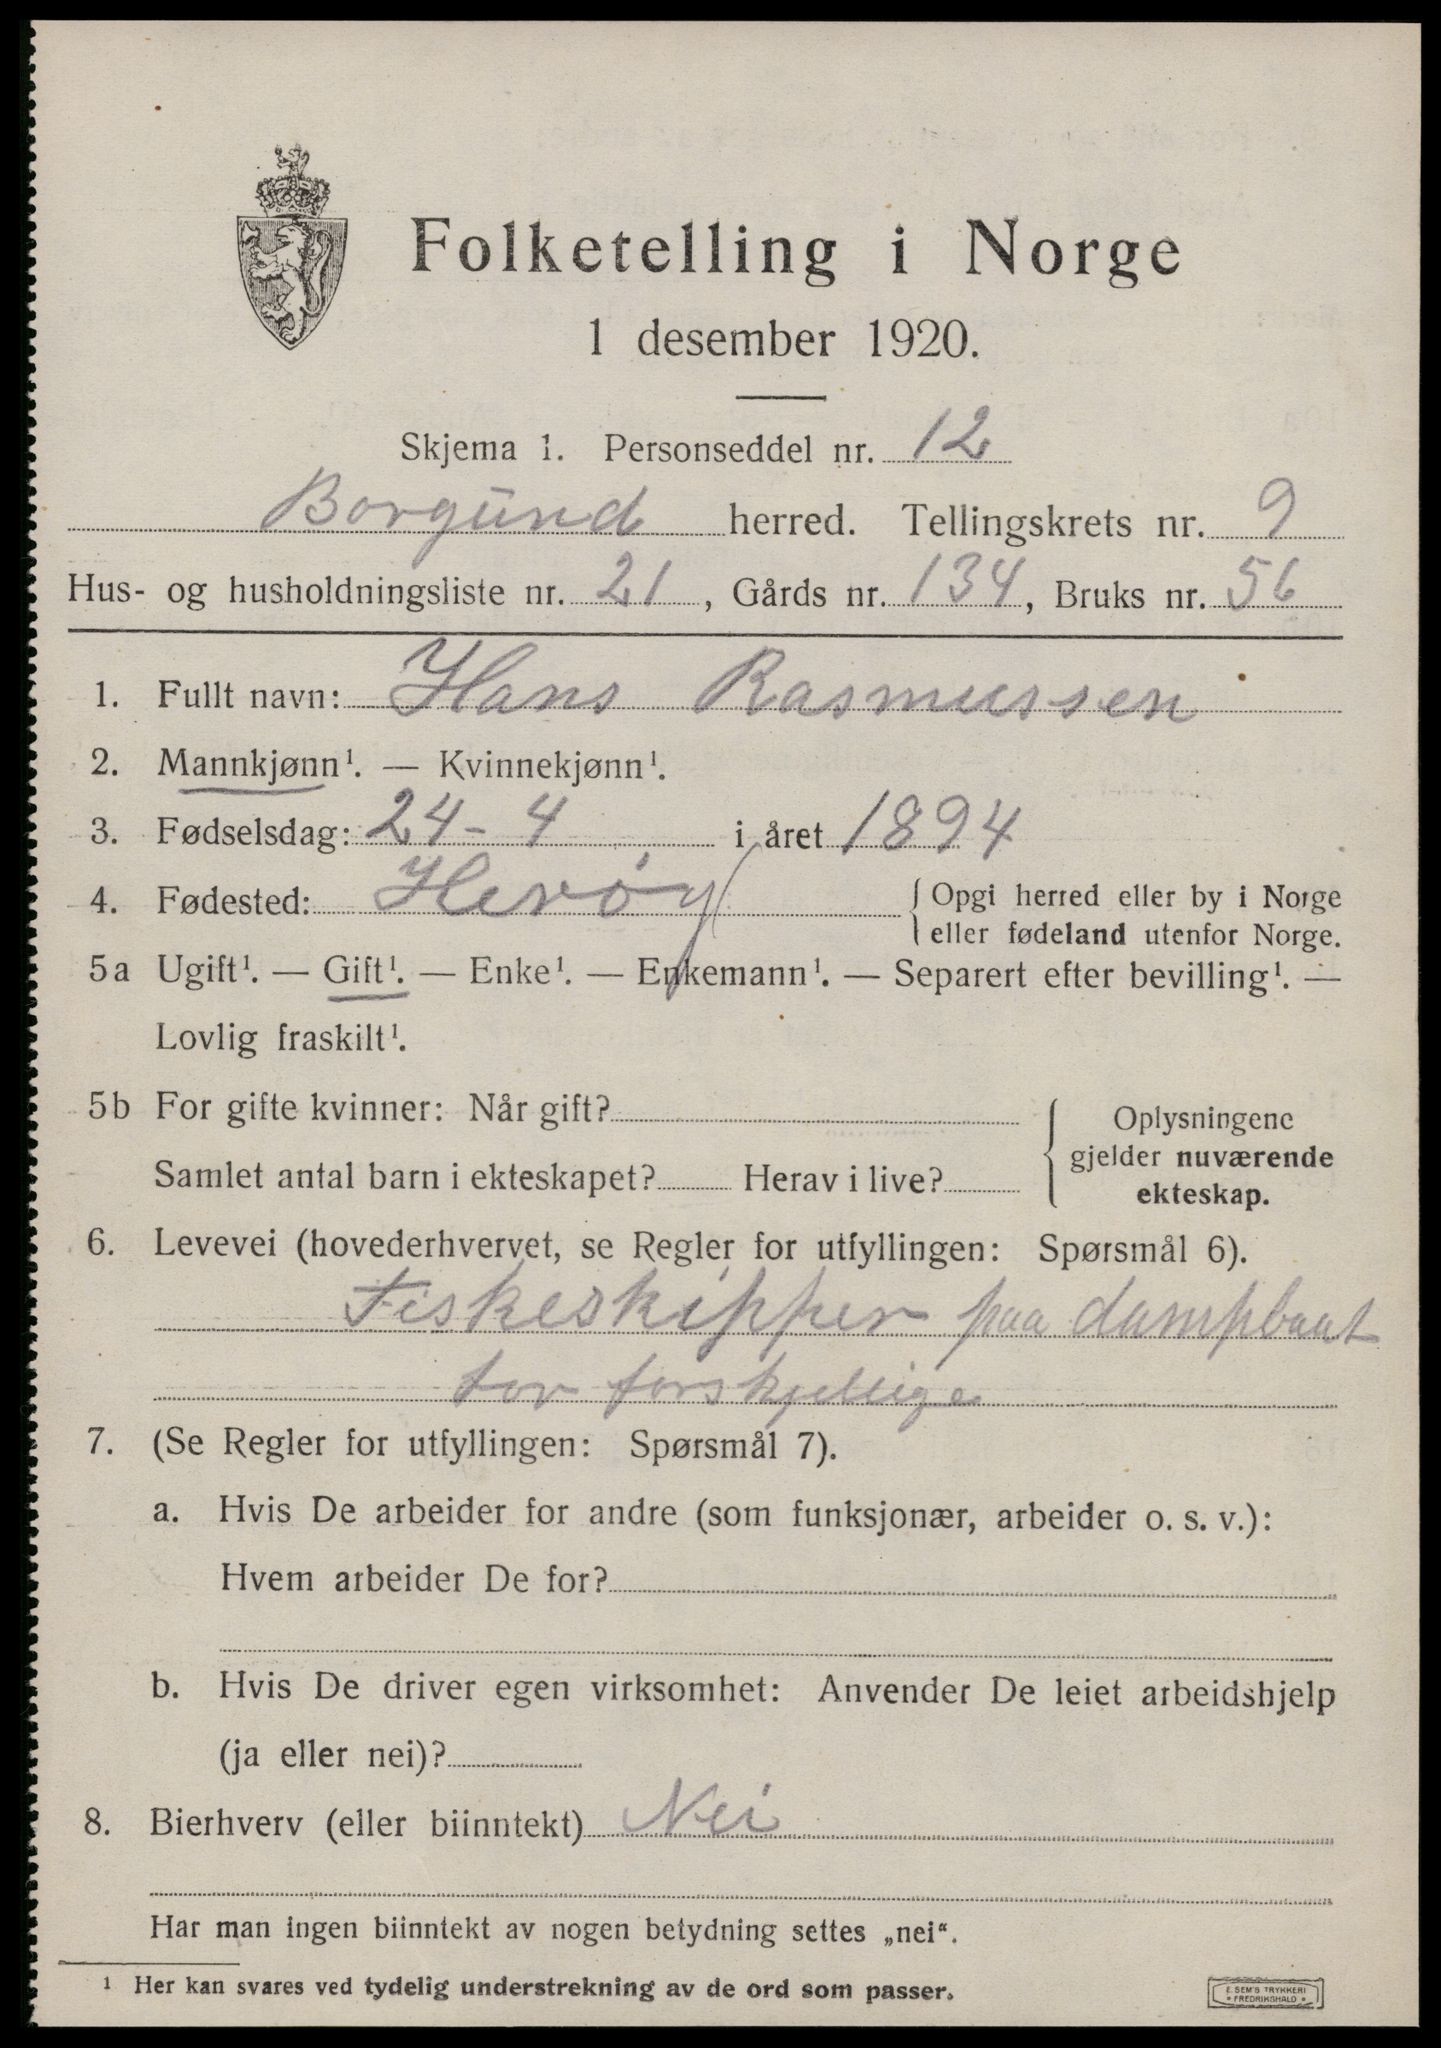 Folketelling i Norge
1 desember 1920.
Skjema 1. Personseddel nr. 12
Borgund herred. Tellingskrets nr. 9
Hus- og husholdningsliste nr. 21, Gårds nr. 134, Bruks nr. 56
1. Fullt navn: Hans Rasmussen
2. Mannkjønn¹. — Kvinnekjønn¹.
3. Fødselsdag: 24 - 4 i året 1894
4. Fødested: Herøy { Opgi herred eller by i Norge
eller fødeland utenfor Norge.
5a Ugift¹. — Gift¹. — Enke¹. — Enkemann¹. — Separert efter bevilling¹. —
Lovlig fraskilt¹.
5b For gifte kvinner: Når gift?
Samlet antal barn i ekteskapet? Herav i live?
{ Oplysningene
gjelder nuværende
ekteskap.
6. Levevei (hovederhvervet, se Regler for utfyllingen: Spørsmål 6).
Fiskeskipper paa dampbaat
for forskjellige
7. (Se Regler for utfyllingen: Spørsmål 7).
a. Hvis De arbeider for andre (som funksjonær, arbeider o. s. v.):
Hvem arbeider De for?
b. Hvis De driver egen virksomhet: Anvender De leiet arbeidshjelp
(ja eller nei)?
8. Bierhverv (eller biinntekt) Nei
Har man ingen biinntekt av nogen betydning settes „nei“.
¹ Her kan svares ved tydelig understrekning av de ord som passer.
E. SEM'S TRYKKERI
• FREDRIKSHALD •